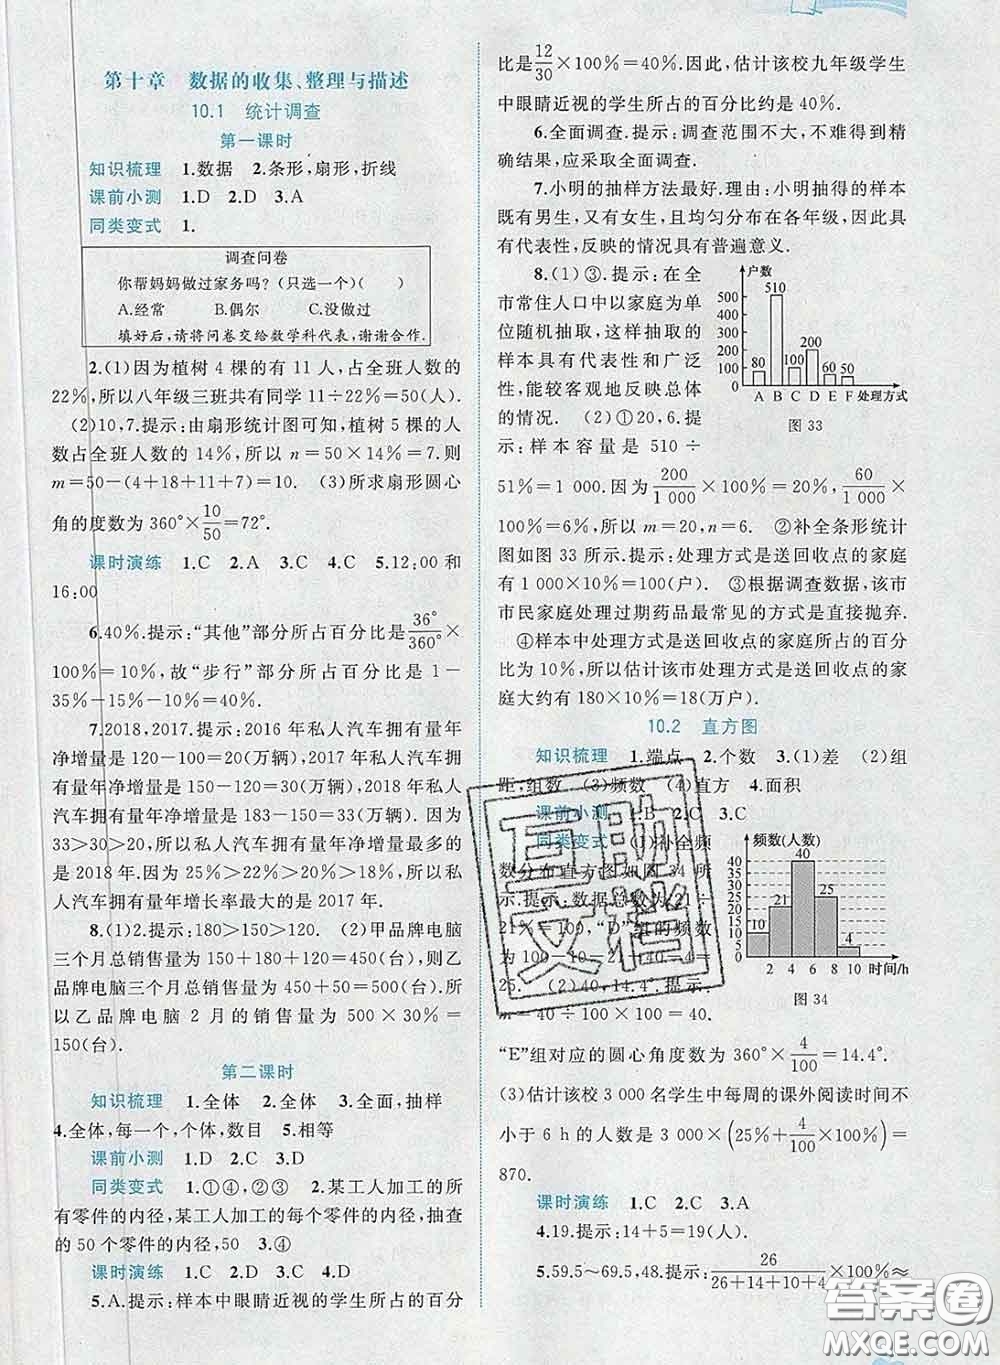 第十章 数据的收集、整理与描述
10.1 统计调查
第一课时
知识梳理 1.数据 2.条形,扇形,折线
课前小测 1.D 2.D 3.A
同类变式 1.
调查问卷
你帮妈妈做过家务吗?(只选一个)( )
A.经常 B.偶尔 C.没做过
填好后,请将问卷交给数学科代表,谢谢合作.
2.(1)因为植树 4 棵的有 11 人,占全班人数的
22%,所以八年级三班共有同学 11÷22%=50(人).
(2)10,7.提示:由扇形统计图可知,植树 5 棵的
人数占全班人数的 14%,所以 n=50×14%=7.则
m=50-(4+18+11+7)=10. (3)所求扇形圆心
角的度数为 360°×10/50=72°.
课时演练 1.C 2.A 3.C 4.C 5.12:00 和
16:00
6.40%.提示:“其他”部分所占百分比是36°/360°×
100%=10%,故“步行”部分所占百分比是 1-
35%-15%-10%=40%.
7.2018,2017.提示:2016 年私人汽车拥有量年
净增量是 120-100=20(万辆),2017 年私人汽车拥
有量年净增量是 150-120=30(万辆),2018 年私人
汽车拥有量年净增量是 183-150=33(万辆).因为
33>30>20,所以私人汽车拥有量年净增量最多的
是 2018 年.因为 25%>22%>20%>18%,所以私
人汽车拥有量年增长率最大的是 2017 年.
8.(1)2.提示:180>150>120. (2)甲品牌电脑
三个月总销售量为 150+180+120=450(台),则乙
品牌电脑三个月总销售量为 450+50=500(台).所
以乙品牌电脑 2 月的销售量为 500×30%=
150(台).
第二课时
知识梳理 1.全体 2.全体 3.全面,抽样
4.全体,每一个,个体,数目 5.相等
课前小测 1.D 2.C 3.D
同类变式 1.①④,②③ 2.某工人加工的所
有零件的内径,某工人加工的每个零件的内径,抽查
的 50 个零件的内径,50 3.④
课时演练 1.C 2.C 3.C 4.D
5.A.提示:样本中眼睛近视的学生所占的百分
比是12/30×100%=40%.因此,估计该校九年级学生
中眼睛近视的学生所占的百分比约是 40%.
6.全面调查.提示:调查范围不大,不难得到精
确结果,应采取全面调查.
7.小明的抽样方法最好.理由:小明抽得的样本
既有男生,又有女生,且均匀分布在各年级,因此具
有代表性,反映的情况具有普遍意义.
8.(1)③.提示:在全
市常住人口中以家庭为单
位随机抽取,这样抽取的
样本具有代表性和广泛
性,能较客观地反映总体
的情况. (2)①20,6.提
示:样本容量是 510÷
户数
500
400
300
200
100
0
80
510
100
200
60
50
A B C D E F 处理方式
图 33
51%=1 000.因为200/1 000×100%=20%,60/1 000×
100%=6%,所以 m=20,n=6. ②补全条形统计
图如图 33 所示.提示:处理方式是送回收点的家庭
有 1 000×10%=100(户). ③根据调查数据,该市
市民家庭处理过期药品最常见的方式是直接抛弃.
④样本中处理方式是送回收点的家庭所占的百分
比为 10%,所以估计该市处理方式是送回收点的家
庭大约有 180×10%=18(万户).
10.2 直方图
知识梳理 1.端点 2.个数 3.(1)差 (2)组
距,组数 (3)频数 (4)直方 4.面积
课前小测 1.B 2.C 3.C
同类变式 (1)补全频
数分布直方图如图 34 所
示.提示:数据总数为 21÷
21%=100,“D”组的频数
为 100-10-21-40-4=
25. (2)40,14.4°.提示:
m=40÷100×100=40.
频数(人数)
40
35
30
25
20
15
10
5
0
10
21
40
25
4
2 4 6 8 10 时间/h
图 34
“E”组对应的圆心角度数为 360°×4/100=14.4°.
(3)估计该校 3 000 名学生中每周的课外阅读时间不
小于 6 h 的人数是 3 000×(25%+4/100×100%)=
870.
课时演练 1.C 2.C 3.A
4.19.提示:14+5=19(人).
5.59.5~69.5,48.提示:26/26+14+10+4×100%≈
互助
文档
答案圈
MXQE.COM